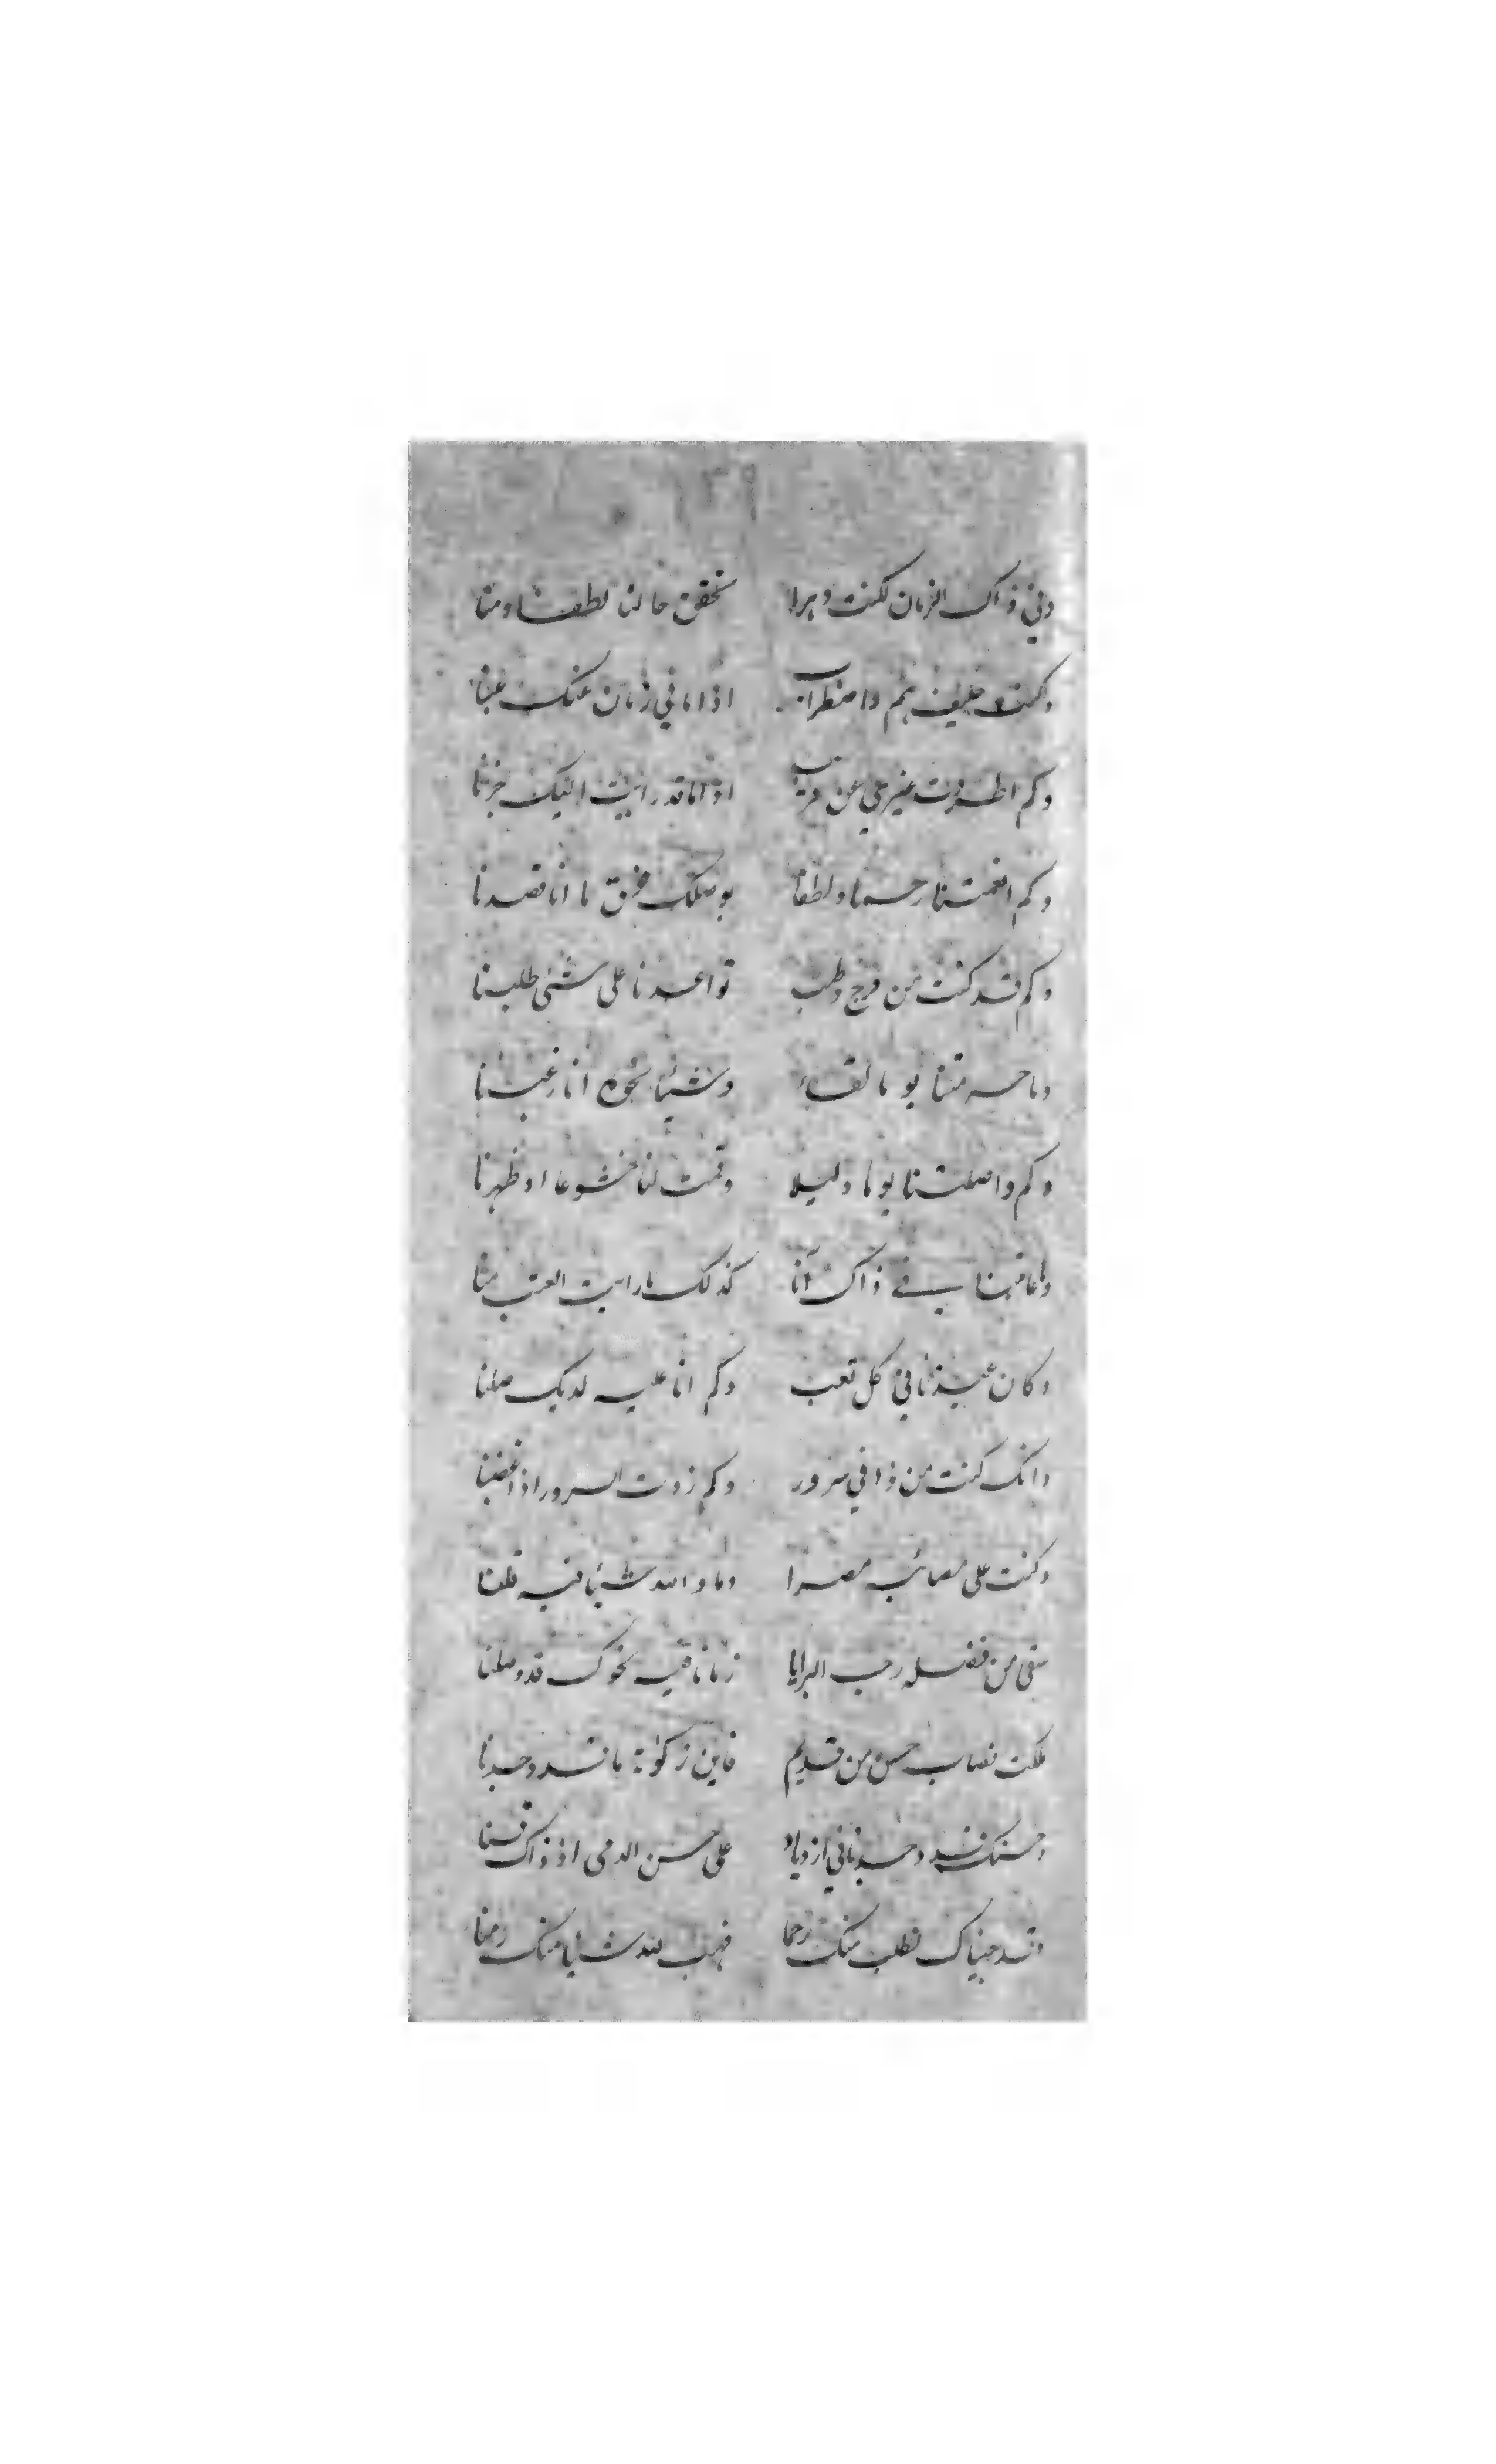 ١٣٩
وفي ذاك الزمان لكنت دهرا تحقق حالنا لطفا ومنا
وكنت حليف هم واضطراب اذا ما في زمان عنك غبنا
وكم اطردت غيري عن قريب اذا ما قد رايت اليك جزنا
وكم انعمتنا رحما ولطفا بوصلك فوق ما انا قصدنا
وكم قد كنت من فرح وطب تواعدنا على شئ طلبنا
وما حرمتنا يوما لقاء وشيئا نحوه انا رغبنا
وكم واصلتنا يوما وليلا وقمت لنا خشوعا او ظهرنا
وما عاقبنا في ذاك آنا كذلك ما رايت العتب منا
وكان عبيدنا في كل تعب وكم انا عليه لديك صلنا
وانك كنت من ذا في سرور وكم زدت السرور اذا غضبنا
وكنت على مصائبه مصرا وما والله شيئا فيه قلنا
سقى من فضله رب البرايا زمانا فيه نحوك قد وصلنا
ملكت نصاب حسن من قديم فاين زكوة ما قد وجدنا
وحسنك قد وجدنا في ازدياد على حسن الدمى اذ ذاك قسنا
وقد جيناك نطلب منك رحما فهب لله شيئا منك